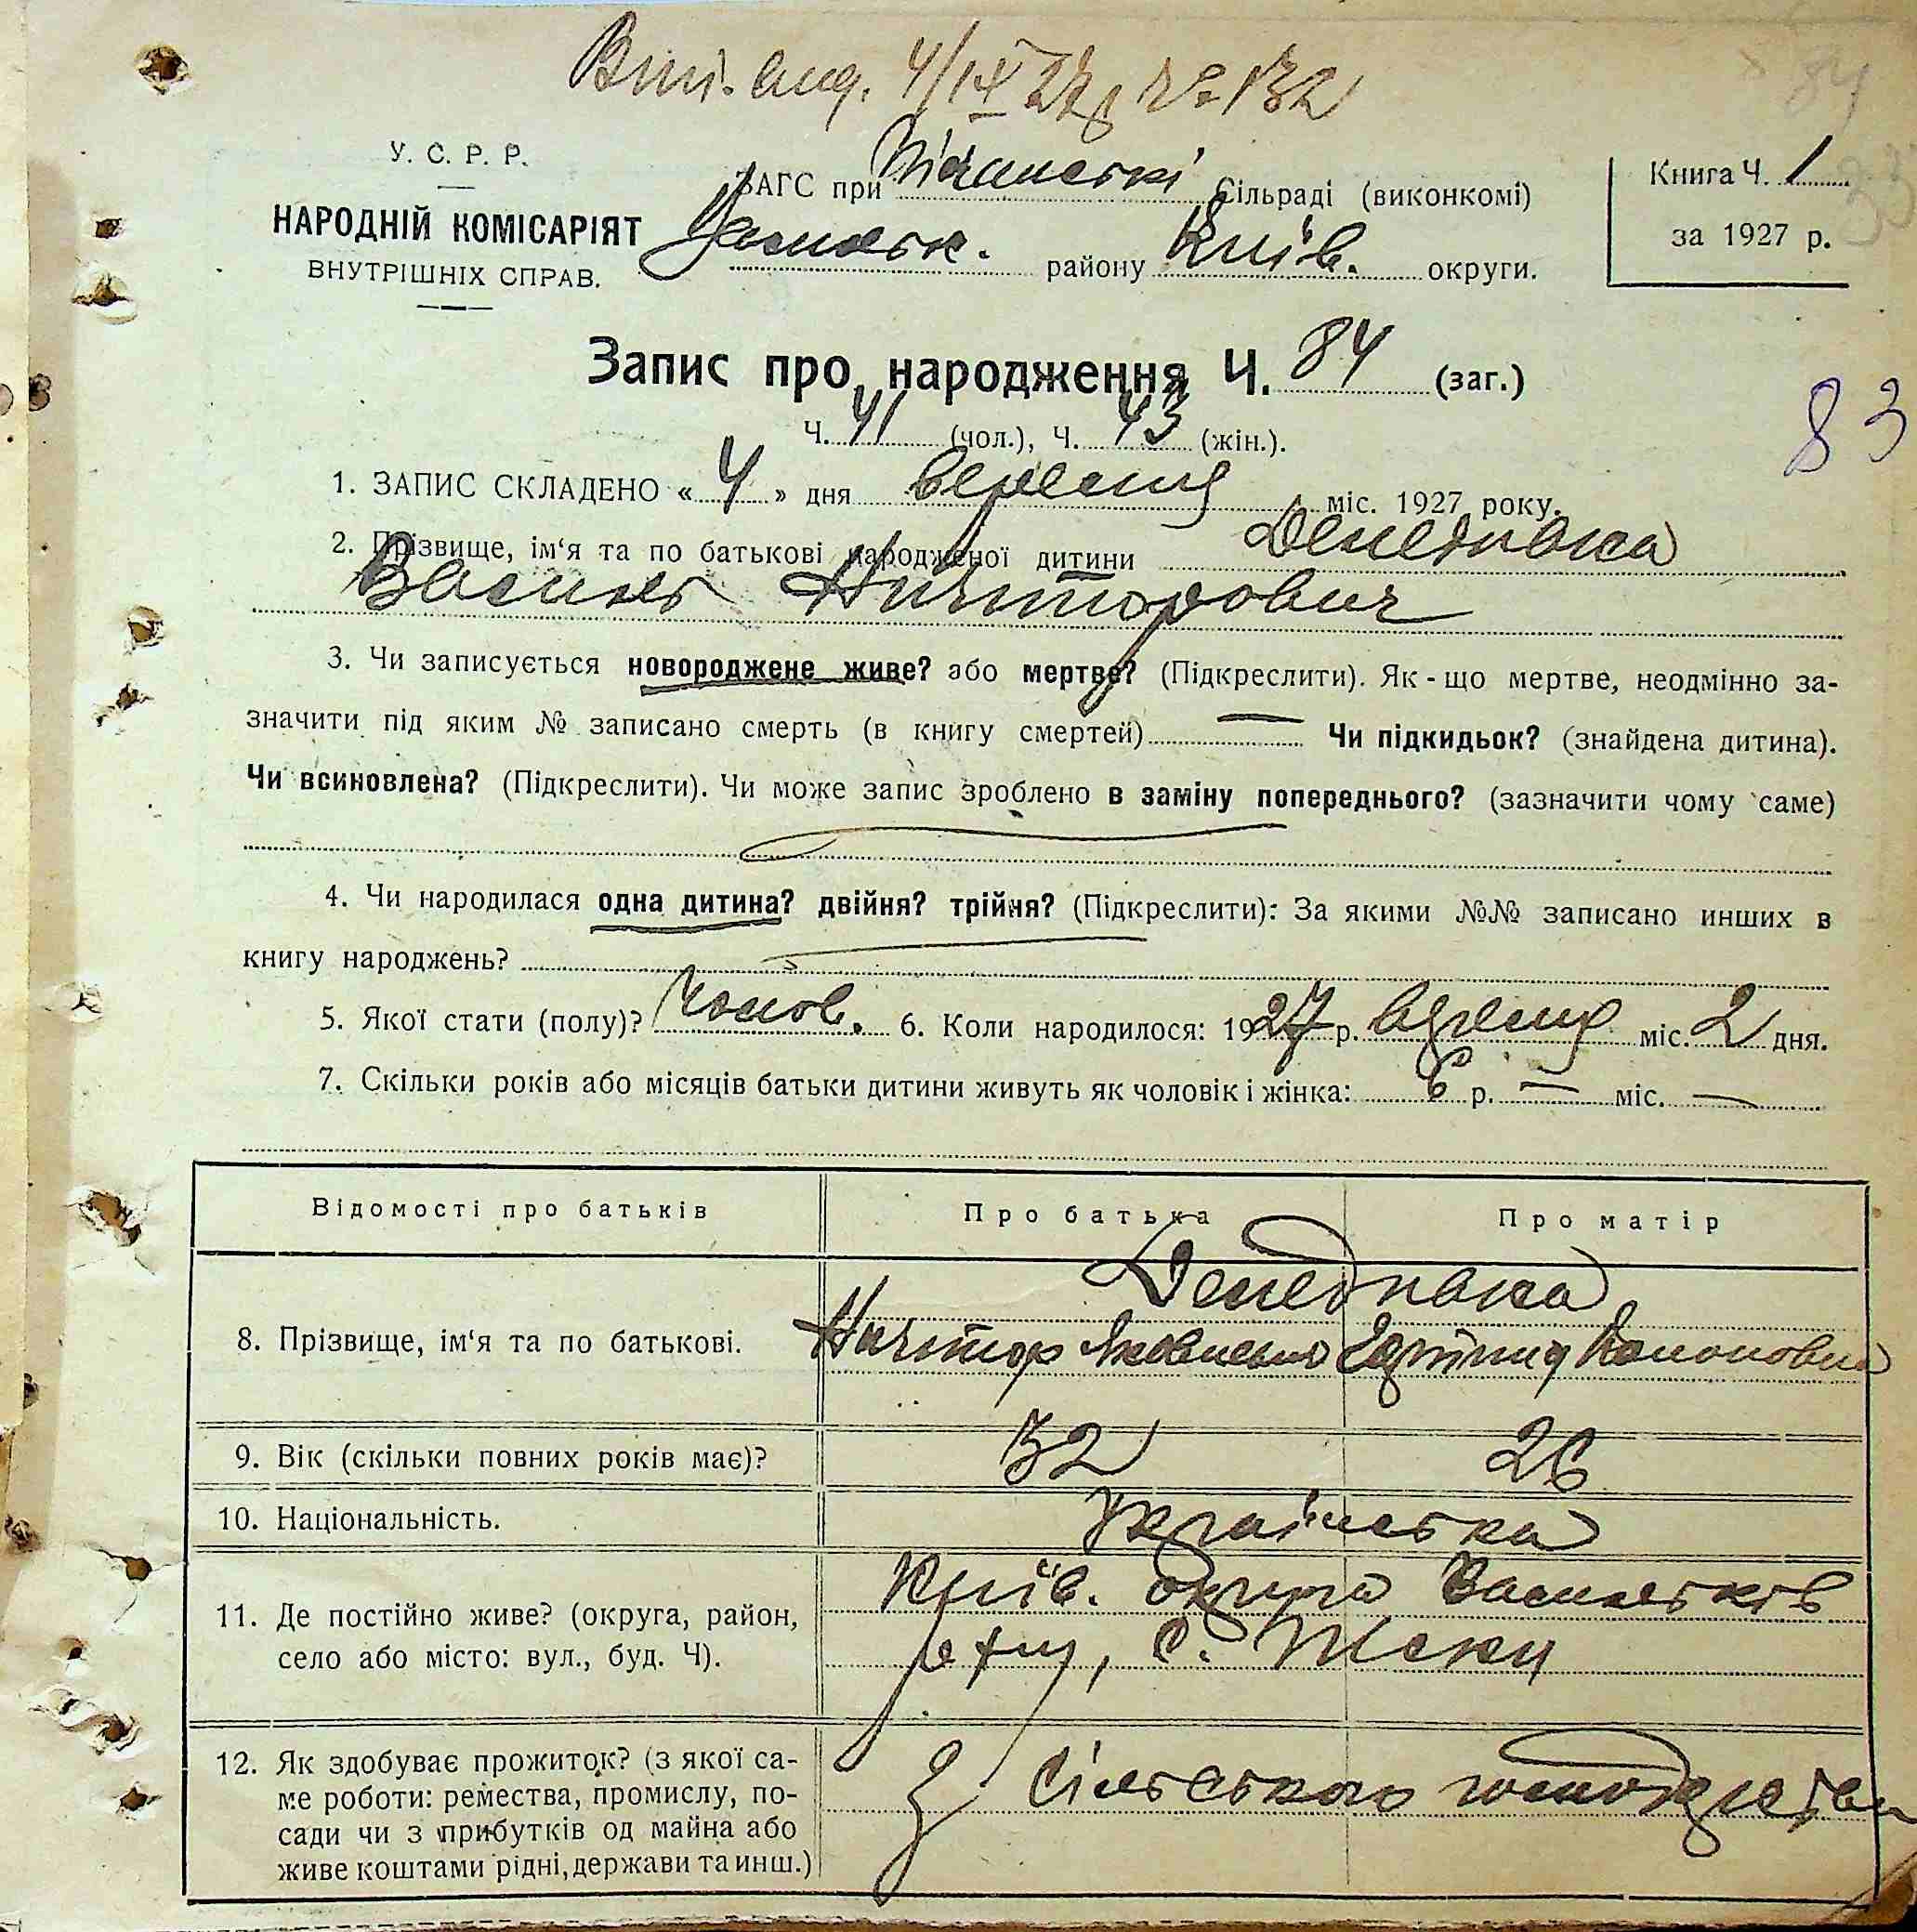 84
У. С. Р. Р.
НАРОДНІЙ КОМІСАРІЯТ
ВНУТРІШНІХ СПРАВ.
ЗАГС при Піщанські Сільраді (виконкомі)
району Київ. округи.
Книга Ч. 1
за 1927 р.
33
Запис про народження Ч. 84 (заг.)
Ч. 41 (чол.), Ч. 43 (жін.).
83
1. ЗАПИС СКЛАДЕНО « 4 » дня вересня міс. 1927 року.
2. Прізвище, ім'я та по батькові народженої дитини
Василь Ничипорович
3. Чи записується новороджене живе? або мертве? (Підкреслити). Як-що мертве, неодмінно за-
значити під яким № записано смерть (в книгу смертей) — Чи підкидьок? (знайдена дитина).
Чи всиновлена? (Підкреслити). Чи може запис зроблено в заміну попереднього? (зазначити чому саме)
4. Чи народилася одна дитина? двійня? трійня? (Підкреслити): За якими №№ записано инших в
книгу народжень?
5. Якої стати (полу)? чолов. 6. Коли народилося: 1927 р. вересня міс. 2 дня.
7. Скільки років або місяців батьки дитини живуть як чоловік і жінка: 6 р. — міс. —
Відомості про батьків Про батька Про матір
8. Прізвище, ім'я та по батькові.
Ничипор Яковлевич
9. Вік (скільки повних років має)? 32 26
10. Національність. Українська
11. Де постійно живе? (округа, район,
село або місто: вул., буд. Ч).
Київ. округа Васильків
району, с.
12. Як здобуває прожиток? (з якої са-
ме роботи: ремества, промислу, по-
сади чи з прибутків од майна або
живе коштами рідні, держави та инш.)
З сільського господарства